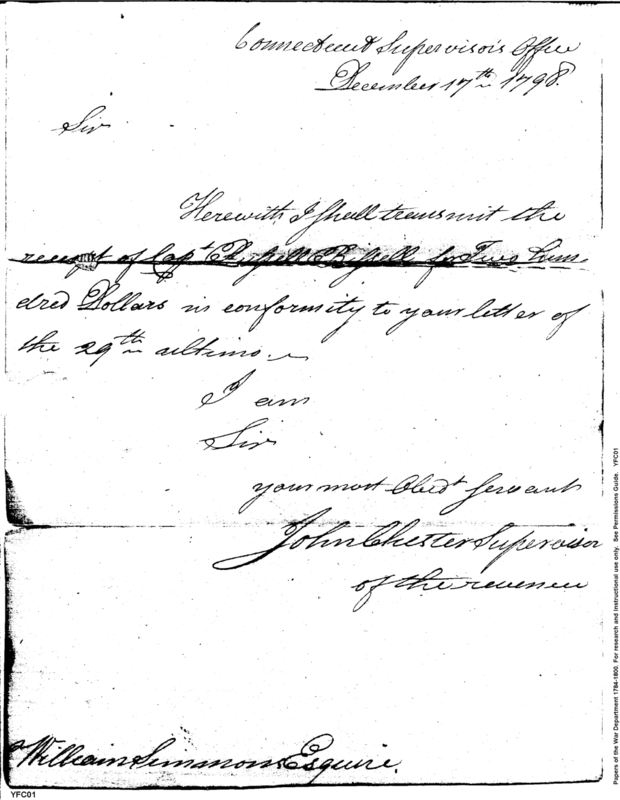 Connecticut Supervisor's Office
December 17th 1798.
Sir
Herewith I shall transmit the
receipt of Capt Russell Bissell for Two hun-
dred Dollars in conformity to your letter of
the 29th ultimo.
I am
Sir
your most Obedt servant
John Chester Supervisor
of the revenue
William Simmons Esquire.
YFC01
Papers of the War Department 1784-1800. For research and instructional use only. See Permissions Guide. YFC01